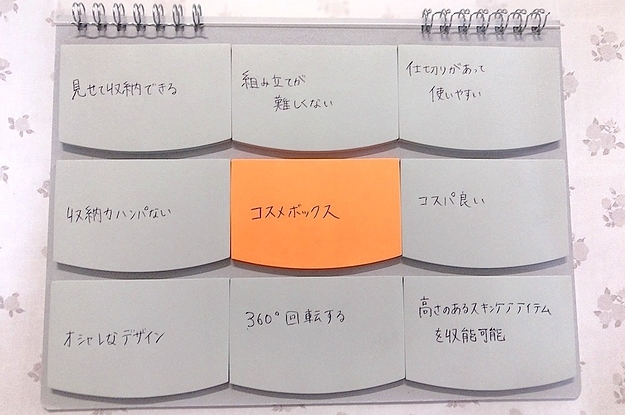 見せて収納できる
組み立てが
難しくない
仕切りがあって
使いやすい
収納力ハンパない
コスメボックス
コスパ良い
オシャレなデザイン
360°回転する
高さのあるスキンケアアイテム
を収能可能